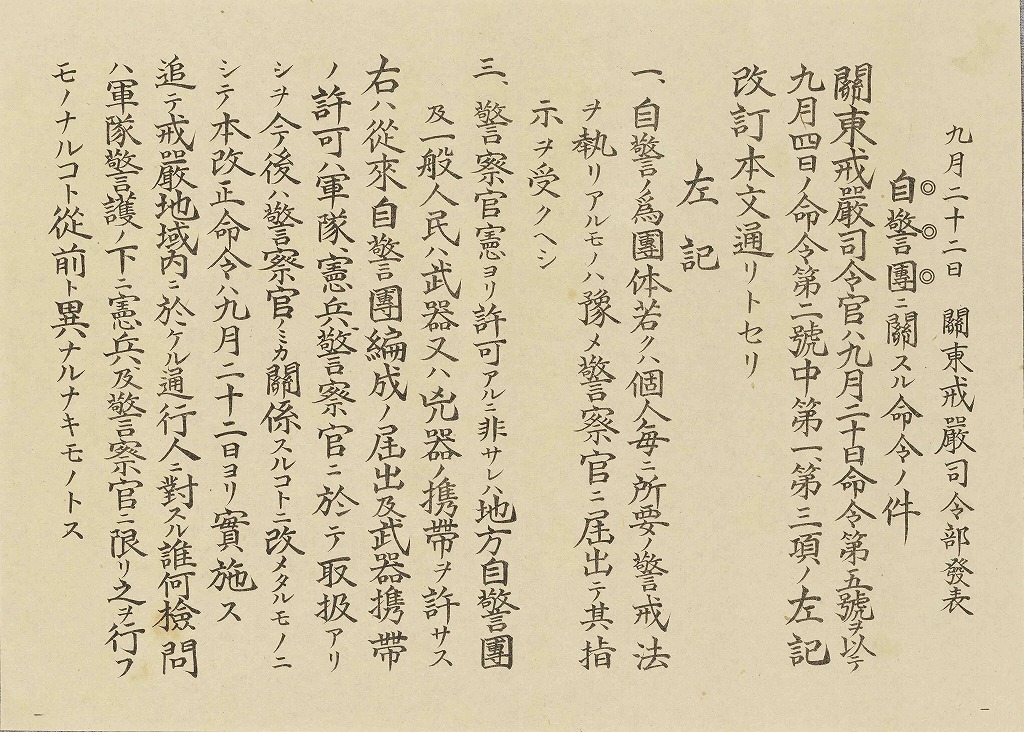 九月二十二日　關東戒嚴司令部發表
◎◎◎
自警團ニ關スル命令ノ件
關東戒嚴司令官ハ九月二十日命令第五號ヲ以テ
九月四日ノ命令第二號中第一、第三項ノ左記
改訂本文通リトセリ
左記
一、自警ノ爲團体若クハ個人每ニ所要ノ警戒法
ヲ執リアルモノハ豫メ警察官ニ屆出テ其指
示ヲ受クヘシ
三、警察官憲ヨリ許可アルニ非サレハ地方自警團
及一般人民ハ武器又ハ兇器ノ携帶ヲ許サス
右ハ從來自警團編成ノ屆出及武器携帶
ノ許可ハ軍隊、憲兵、警察官ニ於テ取扱アリ
シヲ今後ハ警察官ノミカ關係スルコトニ改メタルモノニ
シテ本改正命令ハ九月二十二日ヨリ實施ス
追テ戒嚴地域內ニ於ケル通行人ニ對スル誰何檢問
ハ軍隊警護ノ下ニ憲兵及警察官ニ限リ之ヲ行フ
モノナルコト從前ト異ナルナキモノトス